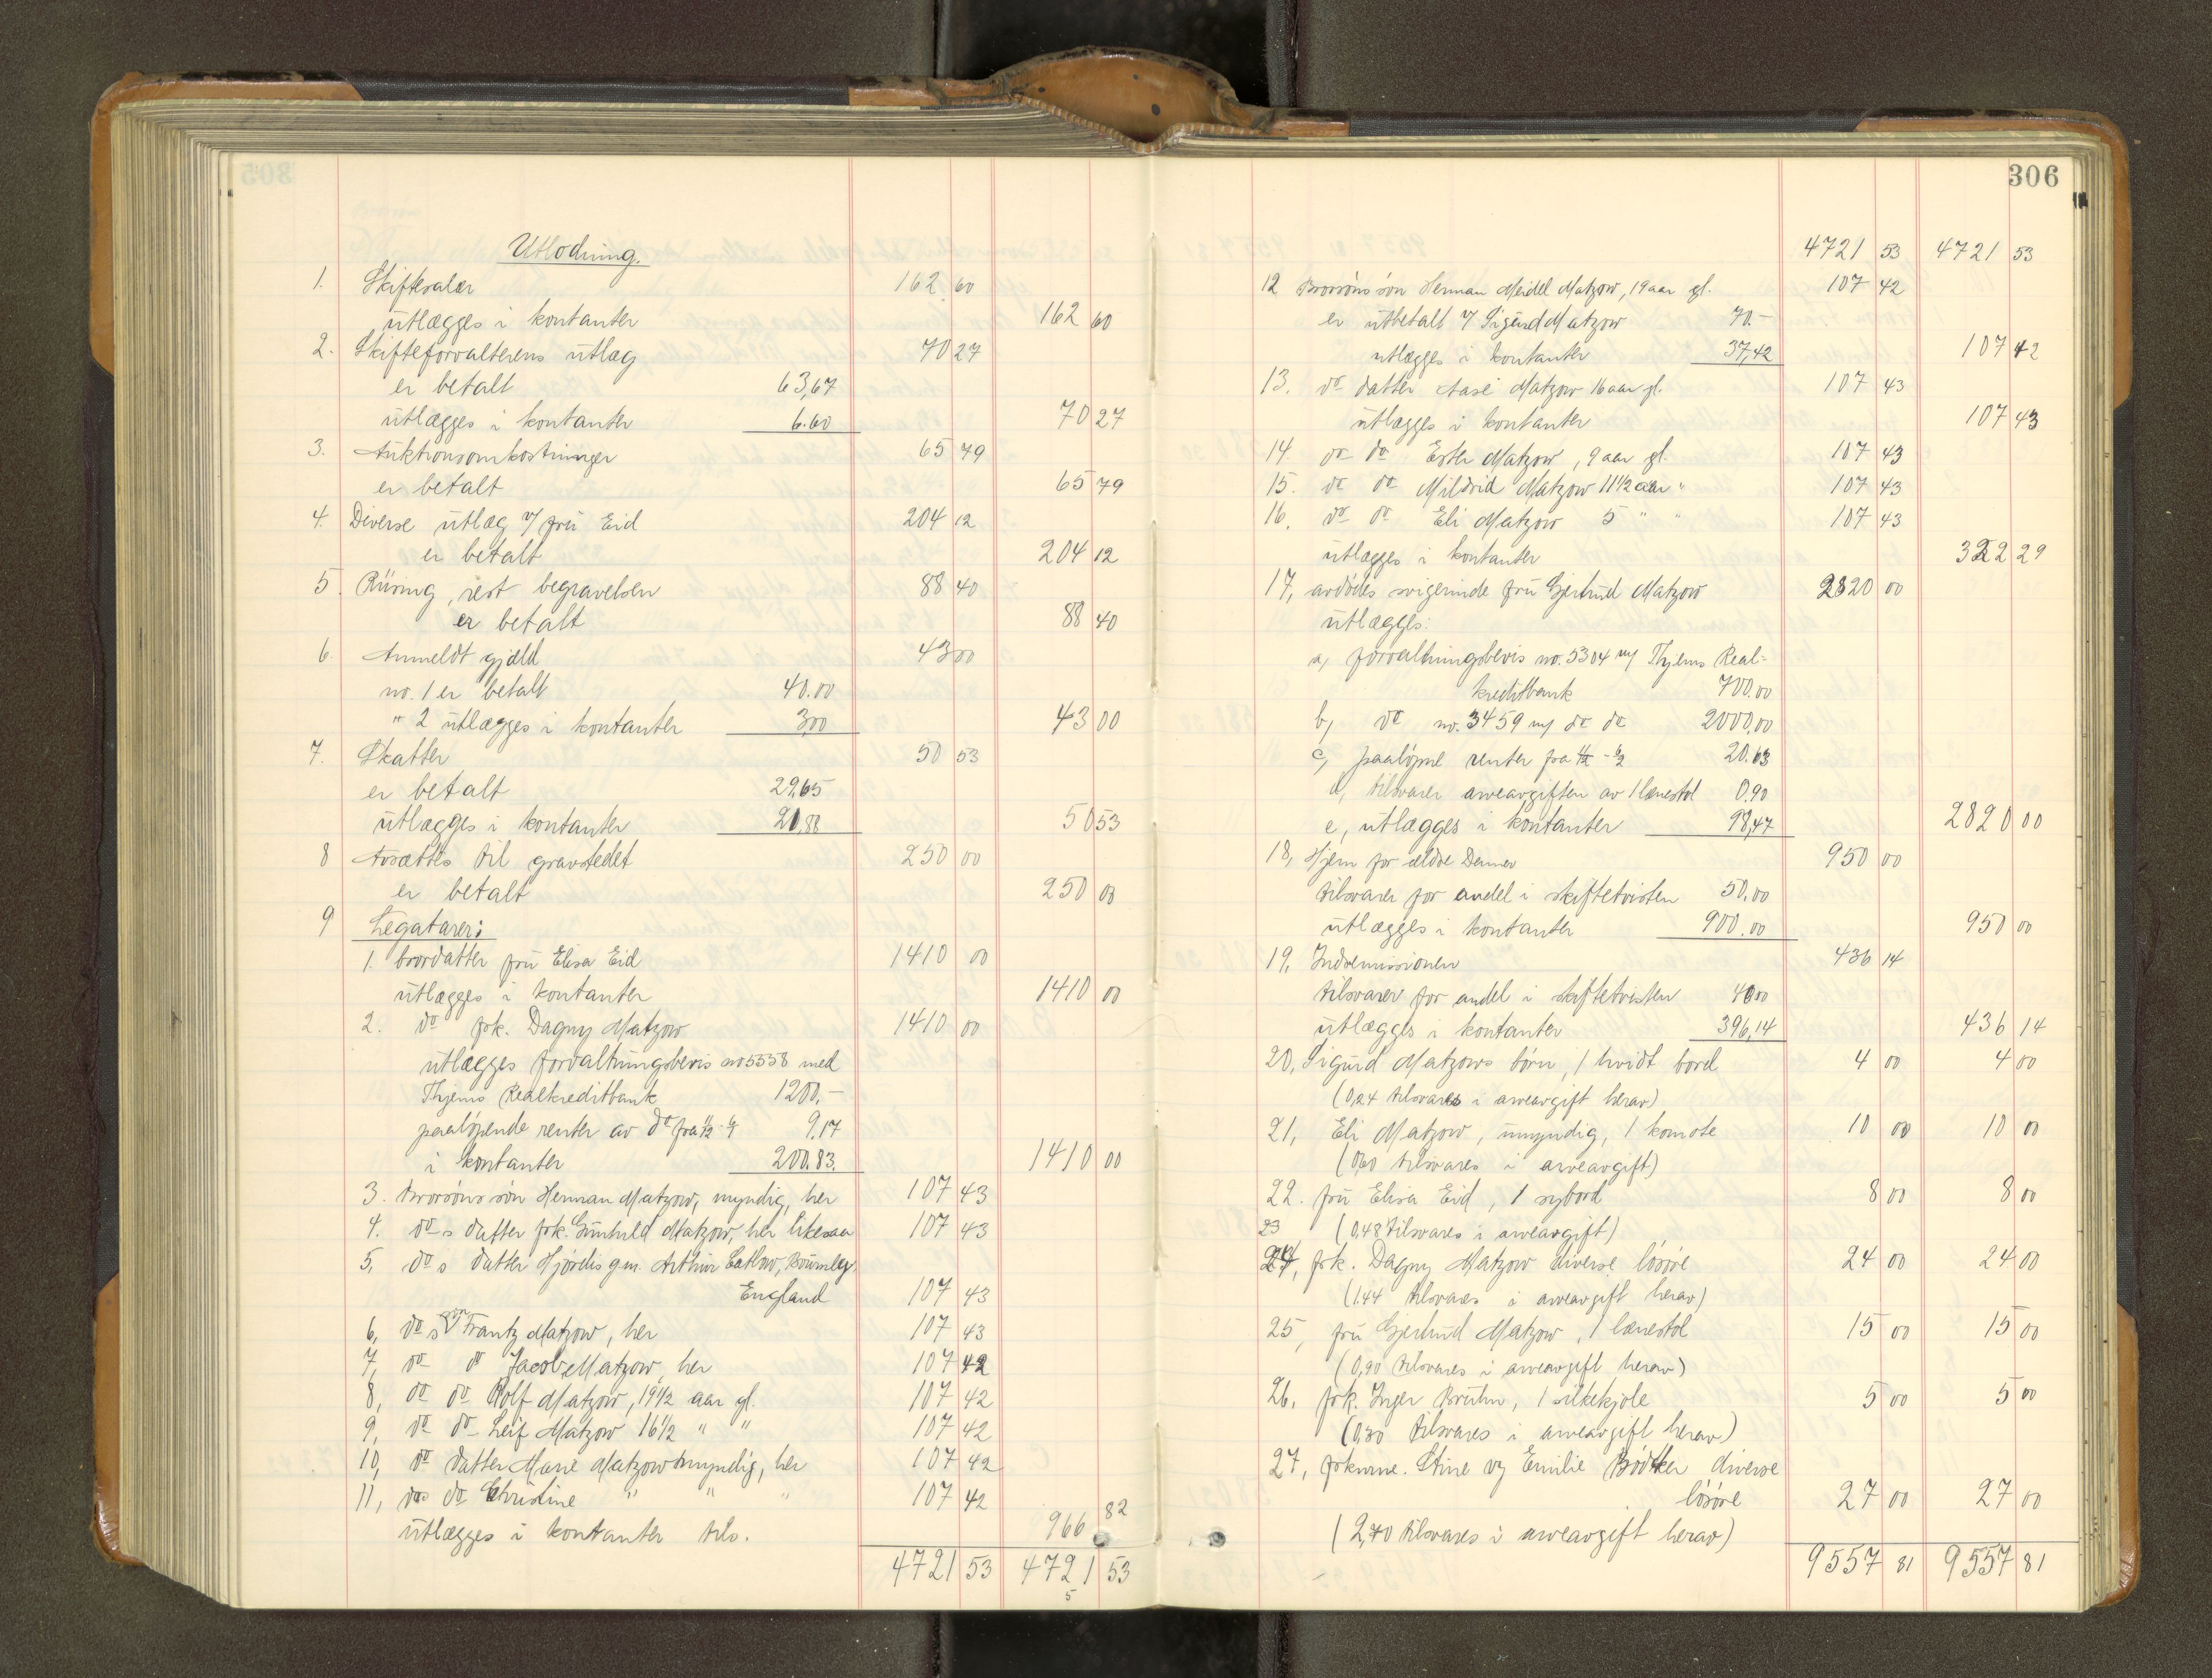 Utlodning.
1. Skiftesalær 162 60
utlægges i kontanter 162 60
2. Skifteforvalterens utlæg 70 27
er betalt 63,67
utlægges i kontanter 6.60 70 27
3. Auktionsomkostninger 65 79
er betalt 65 79
4. Diverse utlæg v/ fru Eid 204 12
er betalt 204 12
5. Rüsing, rest begravelsen 88 40
er betalt 88 40
6. Anmeldt gjæld 43 00
no. 1 er betalt 40.00
" 2 utlægges i kontanter 3,00 43 00
7. Skatter 50 53
er betalt 29,65
utlægges i kontanter 20,88 50 53
8 Avsættes til gravstedet 250 00
er betalt 250 00
9 Legatarer:
1. brordatter fru Elisa Eid 1410 00
utlægges i kontanter 1410 00
2. do frk. Dagny Matzow 1410 00
utlægges forvaltningsbevis no 5558 med
Thjems Realkreditbank 1200,-
paaløpende renter av do fra 1/2 - 6/7 9,17
i kontanter 200.83. 1410 00
3. Brorsøns søn Herman Matzow, myndig, her 107 43
4. do s datter frk. Gunhild Matzow, her likesaa 107 43
5, do s datter Hjørdis gm. Arthur Catlow, Burnley
England 107 43
6, do s søn Frantz Matzow, her 107 43
7, do do Jacob Matzow, her 107 42
8, do do Rolf Matzow, 19 1/2 aar gl. 107 42
9, do do Leif Matzow 16 1/2 " " 107 42
10, do datter Marie Matzow umyndig, her 107 42
11, do s do Christine " " " 107 42
utlægges i kontanter tils. 966 82
4721 53 4721 53
5
306
4721 53 4721 53
12 Brorsøns søn Herman Meidel Matzow, 19 aar gl. 107 42
er utbetalt v/ Sigurd Matzow 70.-
utlægges i kontanter 37,42 107 42
13. do datter Aase Matzow 16 aar gl. 107 43
utlægges i kontanter 107 43
14. do do Ester Matzow, 9 aar gl. 107 43
15. do do Mildrid Matzow 11 1/2 aar " 107 43
16. do do Eli Matzow 5 " " 107 43
utlægges i kontanter 322 29
17, avdødes svigerinde fru Gjertrud Matzow 2820 00
utlægges:
a, forvaltningsbevis no. 5304 m/ Thjems Real=
kreditbank 700.00
b, do no. 3459 m/ do do 2000,00
c, paaløpne renter fra 1/2 - 6/2 20.63
d, tilsvarer arveavgiften av 1 lænestol 0.90
e, utlægges i kontanter 98,47 2820 00
18, Hjem for ældre Damer 950 00
tilsvarer for andel i skiftetvisten 50,00
utlægges i kontanter 900.00 950 00
19, Indremissionen 436 14
tilsvarer for andel i skiftetvisten 40 00
utlægges i kontanter 396,14 436 14
20, Sigurd Matzows børn, 1 hvidt bord 4 00 4 00
(0,24 tilsvares i arveavgift herav)
21, Eli Matzow, umyndig, 1 komode 10 00 10 00
(0,60 tilsvares i arveavgift)
22. fru Elisa Eid, 1 sybord 8 00 8 00
23 (0,48 tilsvares i arveavgift)
24, frk. Dagny Matzow diverse løsøre 24 00 24 00
(1.44 tilsvares i arveavgift herav)
25, fru Gjertrud Matzow, 1 lænestol 15 00 15 00
(0,90 tilsvares i arveavgift herav)
26, frk. Inger Bruhn, 1 silkekjole 5 00 5 00
(0,30 tilsvares i arveavgift herav)
27, frknrne. Stine og Emilie Bødtker diverse
løsøre 27 00 27 00
(2,70 tilsvares i arveavgift herav)
9557 81 9557 81